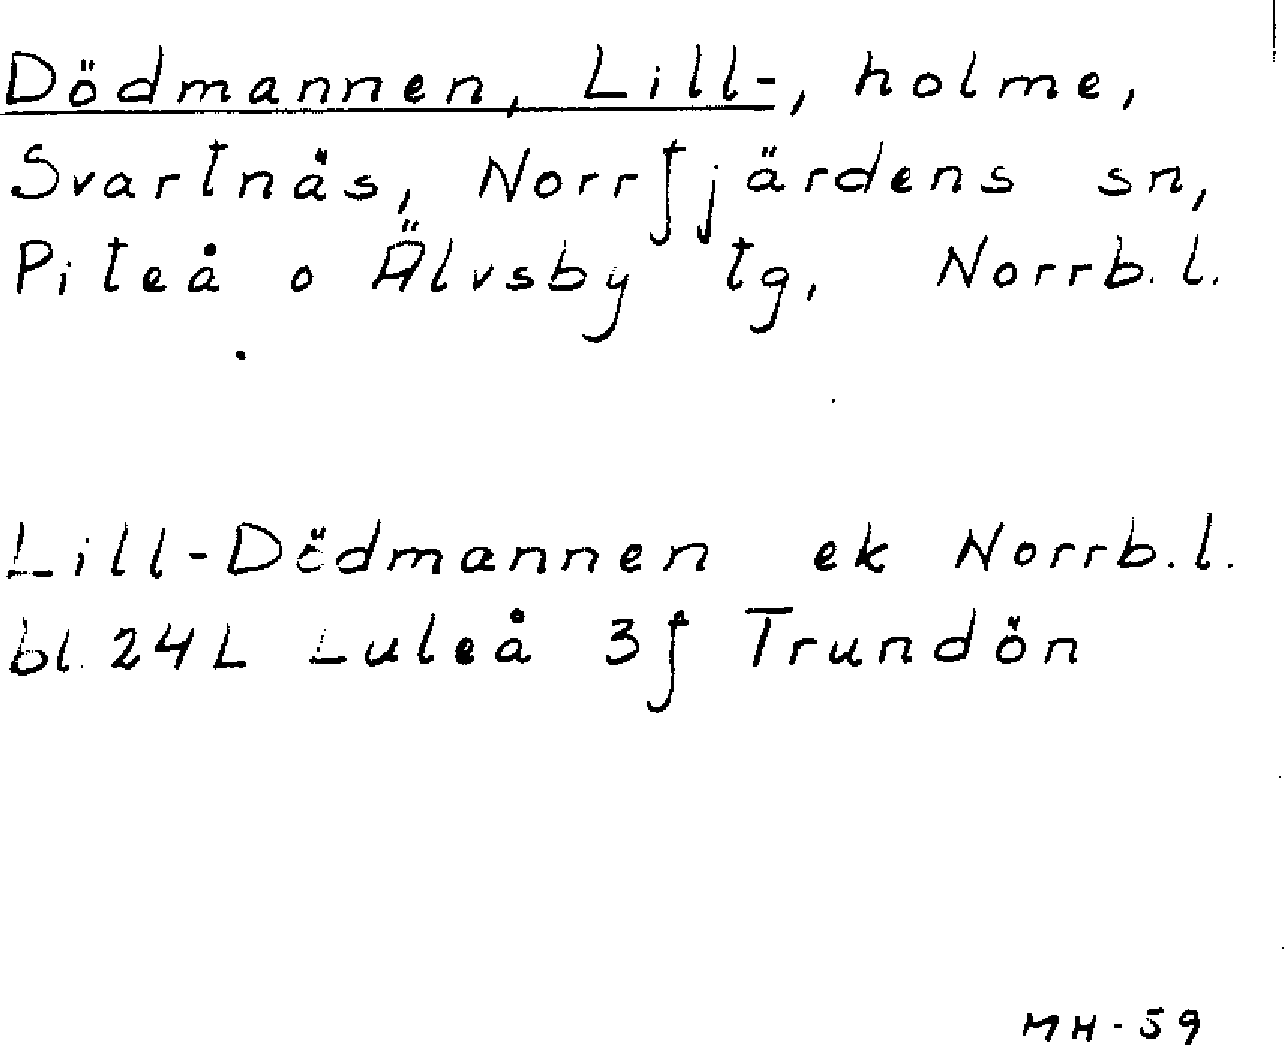 Dödmannen, Lill-, holme,
Svartnäs, Norrfjärdens sn,
Piteå o Älvsby tg, Norrb. l.
Lill-Dödmannen ek Norrb. l.
bl. 24L Luleå 3f Trundön
MH-59